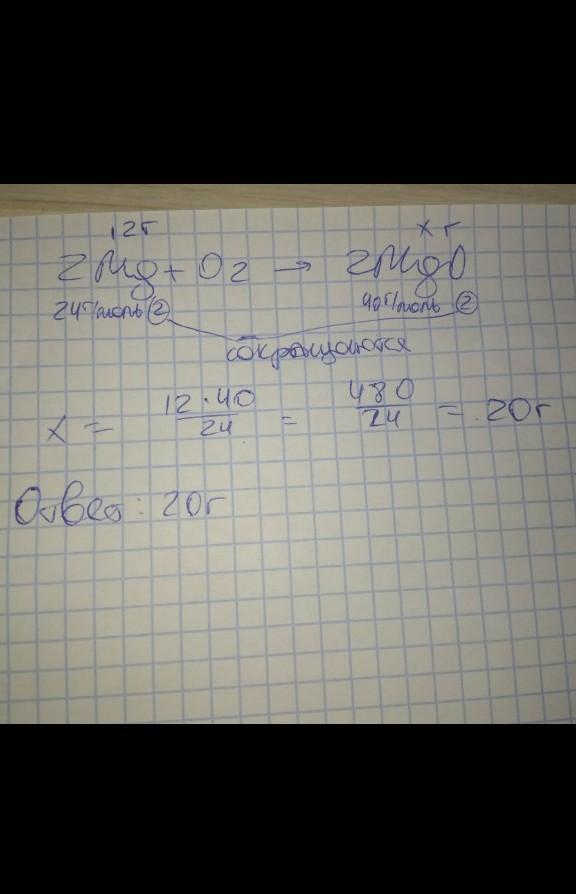 12г xг
2Mg + O2 → 2MgO
24г/моль (2) 40г/моль (2)
сокращаются
x = 12·40/24 = 480/24 = 20г
Ответ: 20г